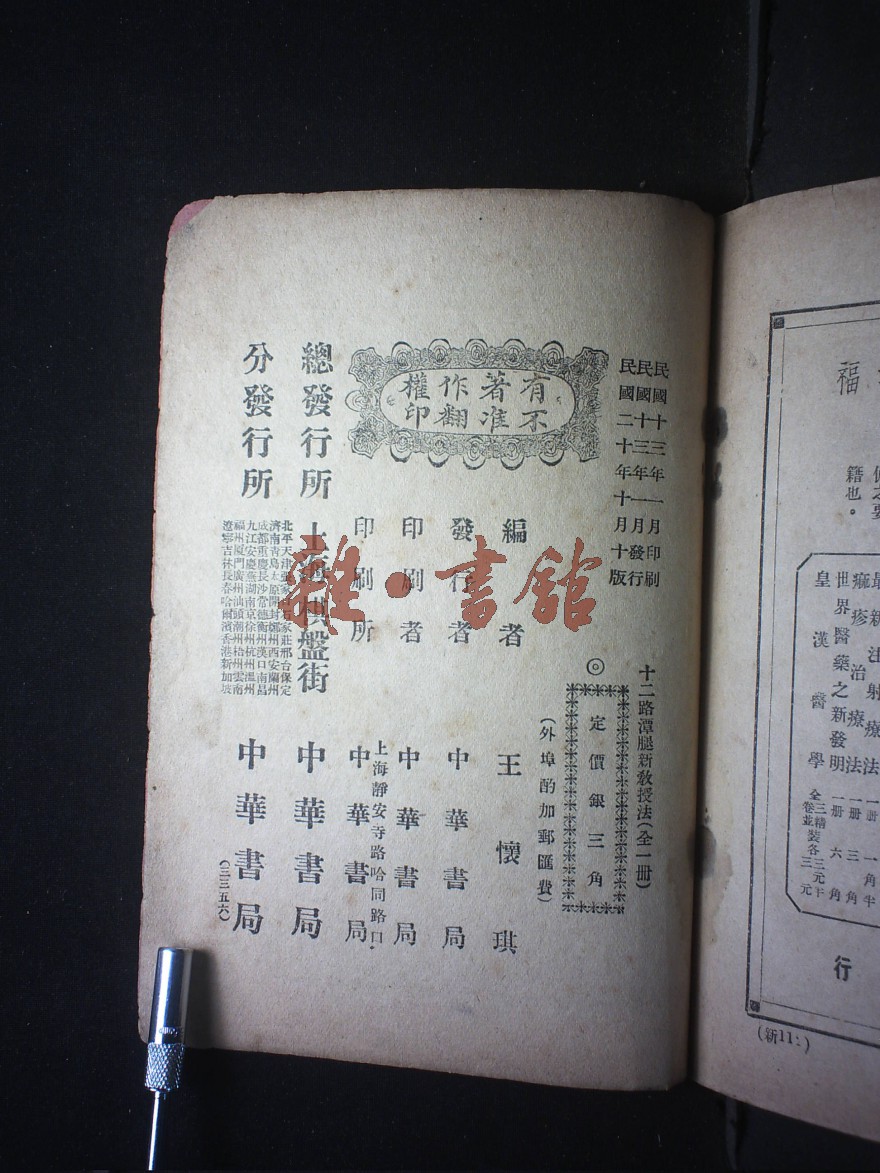 民國十三年一月印刷
民國十三年一月發行
民國二十年十月十版
有不著准作翻權印
十二路潭腿新教授法(全一册)
◎定價銀三角
(外埠酌加郵匯費)
編者 王懷琪
發行者 中華書局
印刷者 中華書局
上海靜安寺路哈同路口
印刷所 中華書局
總發行所 上海棋盤街 中華書局
分發行所
北平天津張家 石家莊邢台保定
濟南青島太原開封鄭州西安蘭州
成都重慶長沙常德衡州漢口南昌
九江安慶蕪湖南京徐州杭州溫州
福州廈門廣州汕頭潮州梧州雲南
遼寧吉林長春哈爾濱香港新加坡
中華書局
(三三五六)
雜·書館
福
籍也。
最新注射療法 一册 一角半
痲疹治療法 一册 三角
世界醫藥之新發明 一册 六角
皇漢醫學 全三卷 精裝 並裝 各三元半 三元
行
(新11:)